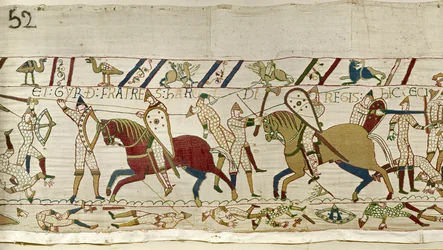 52
ET:GYRÐ:FRATRES:HAROLDI REGIS:HIC CECI